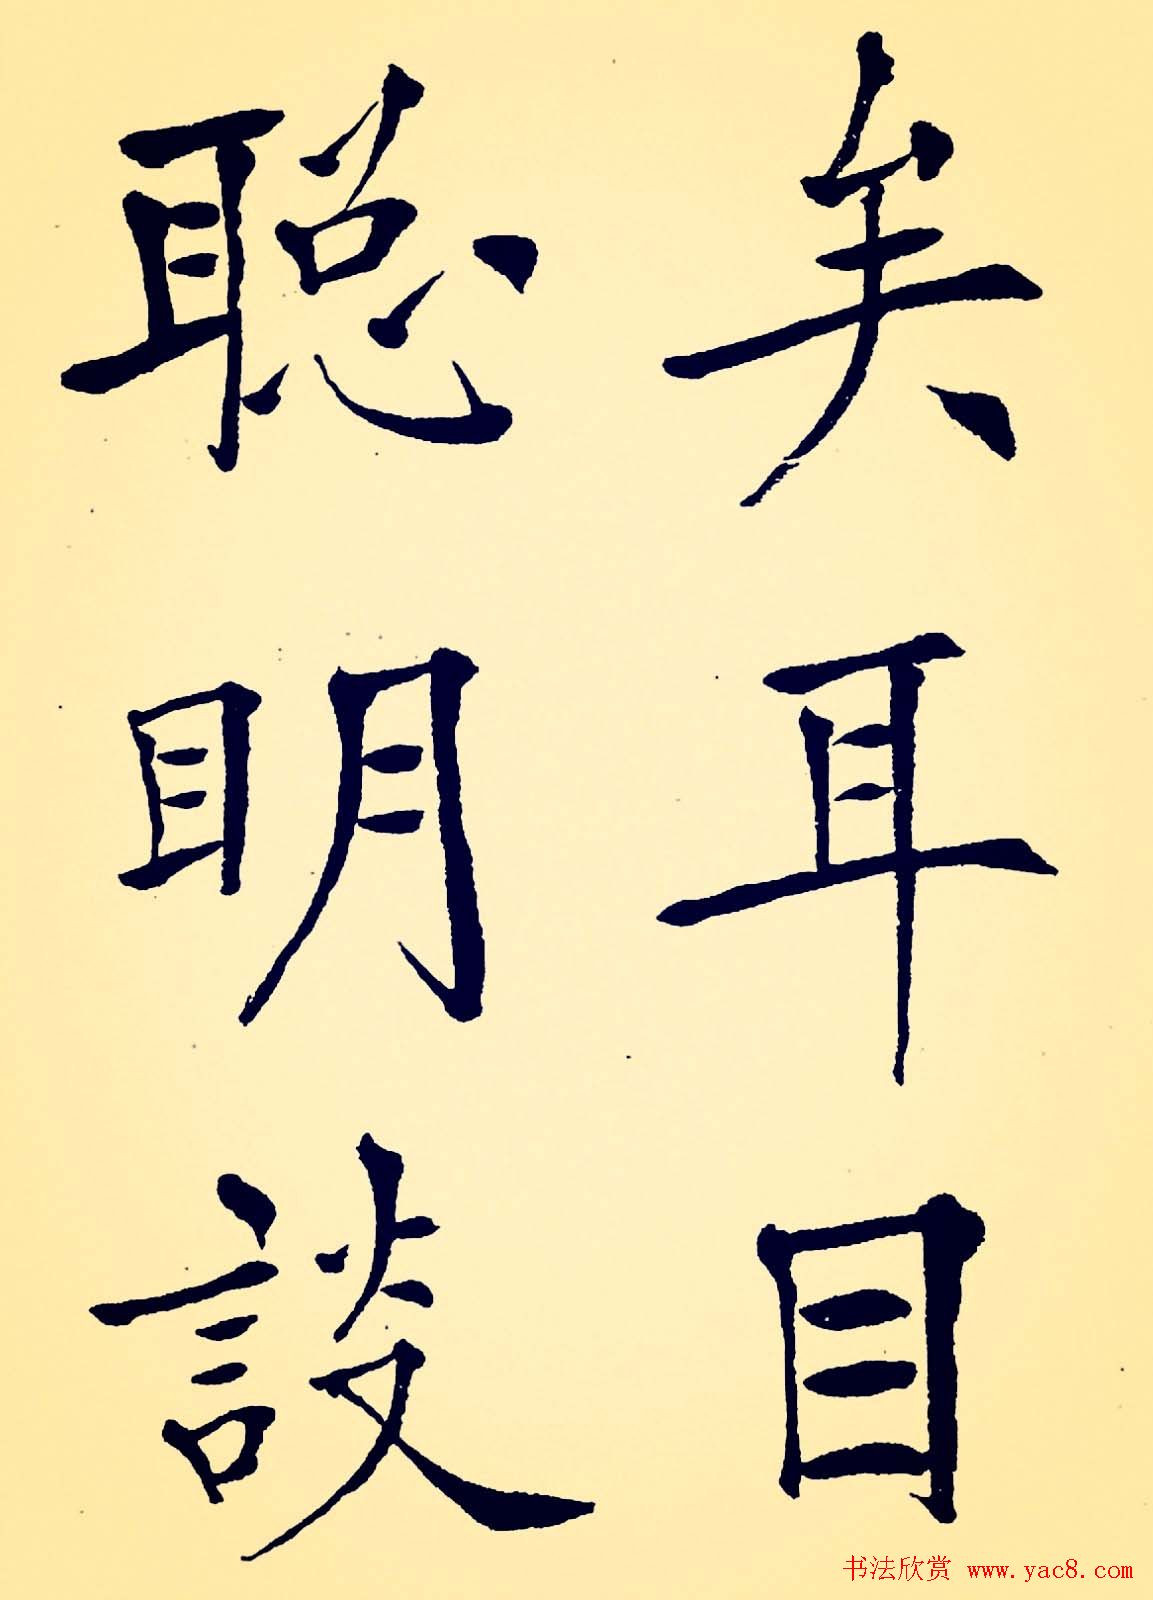 矣耳目
聪明談
书法欣赏 www.yac8.com